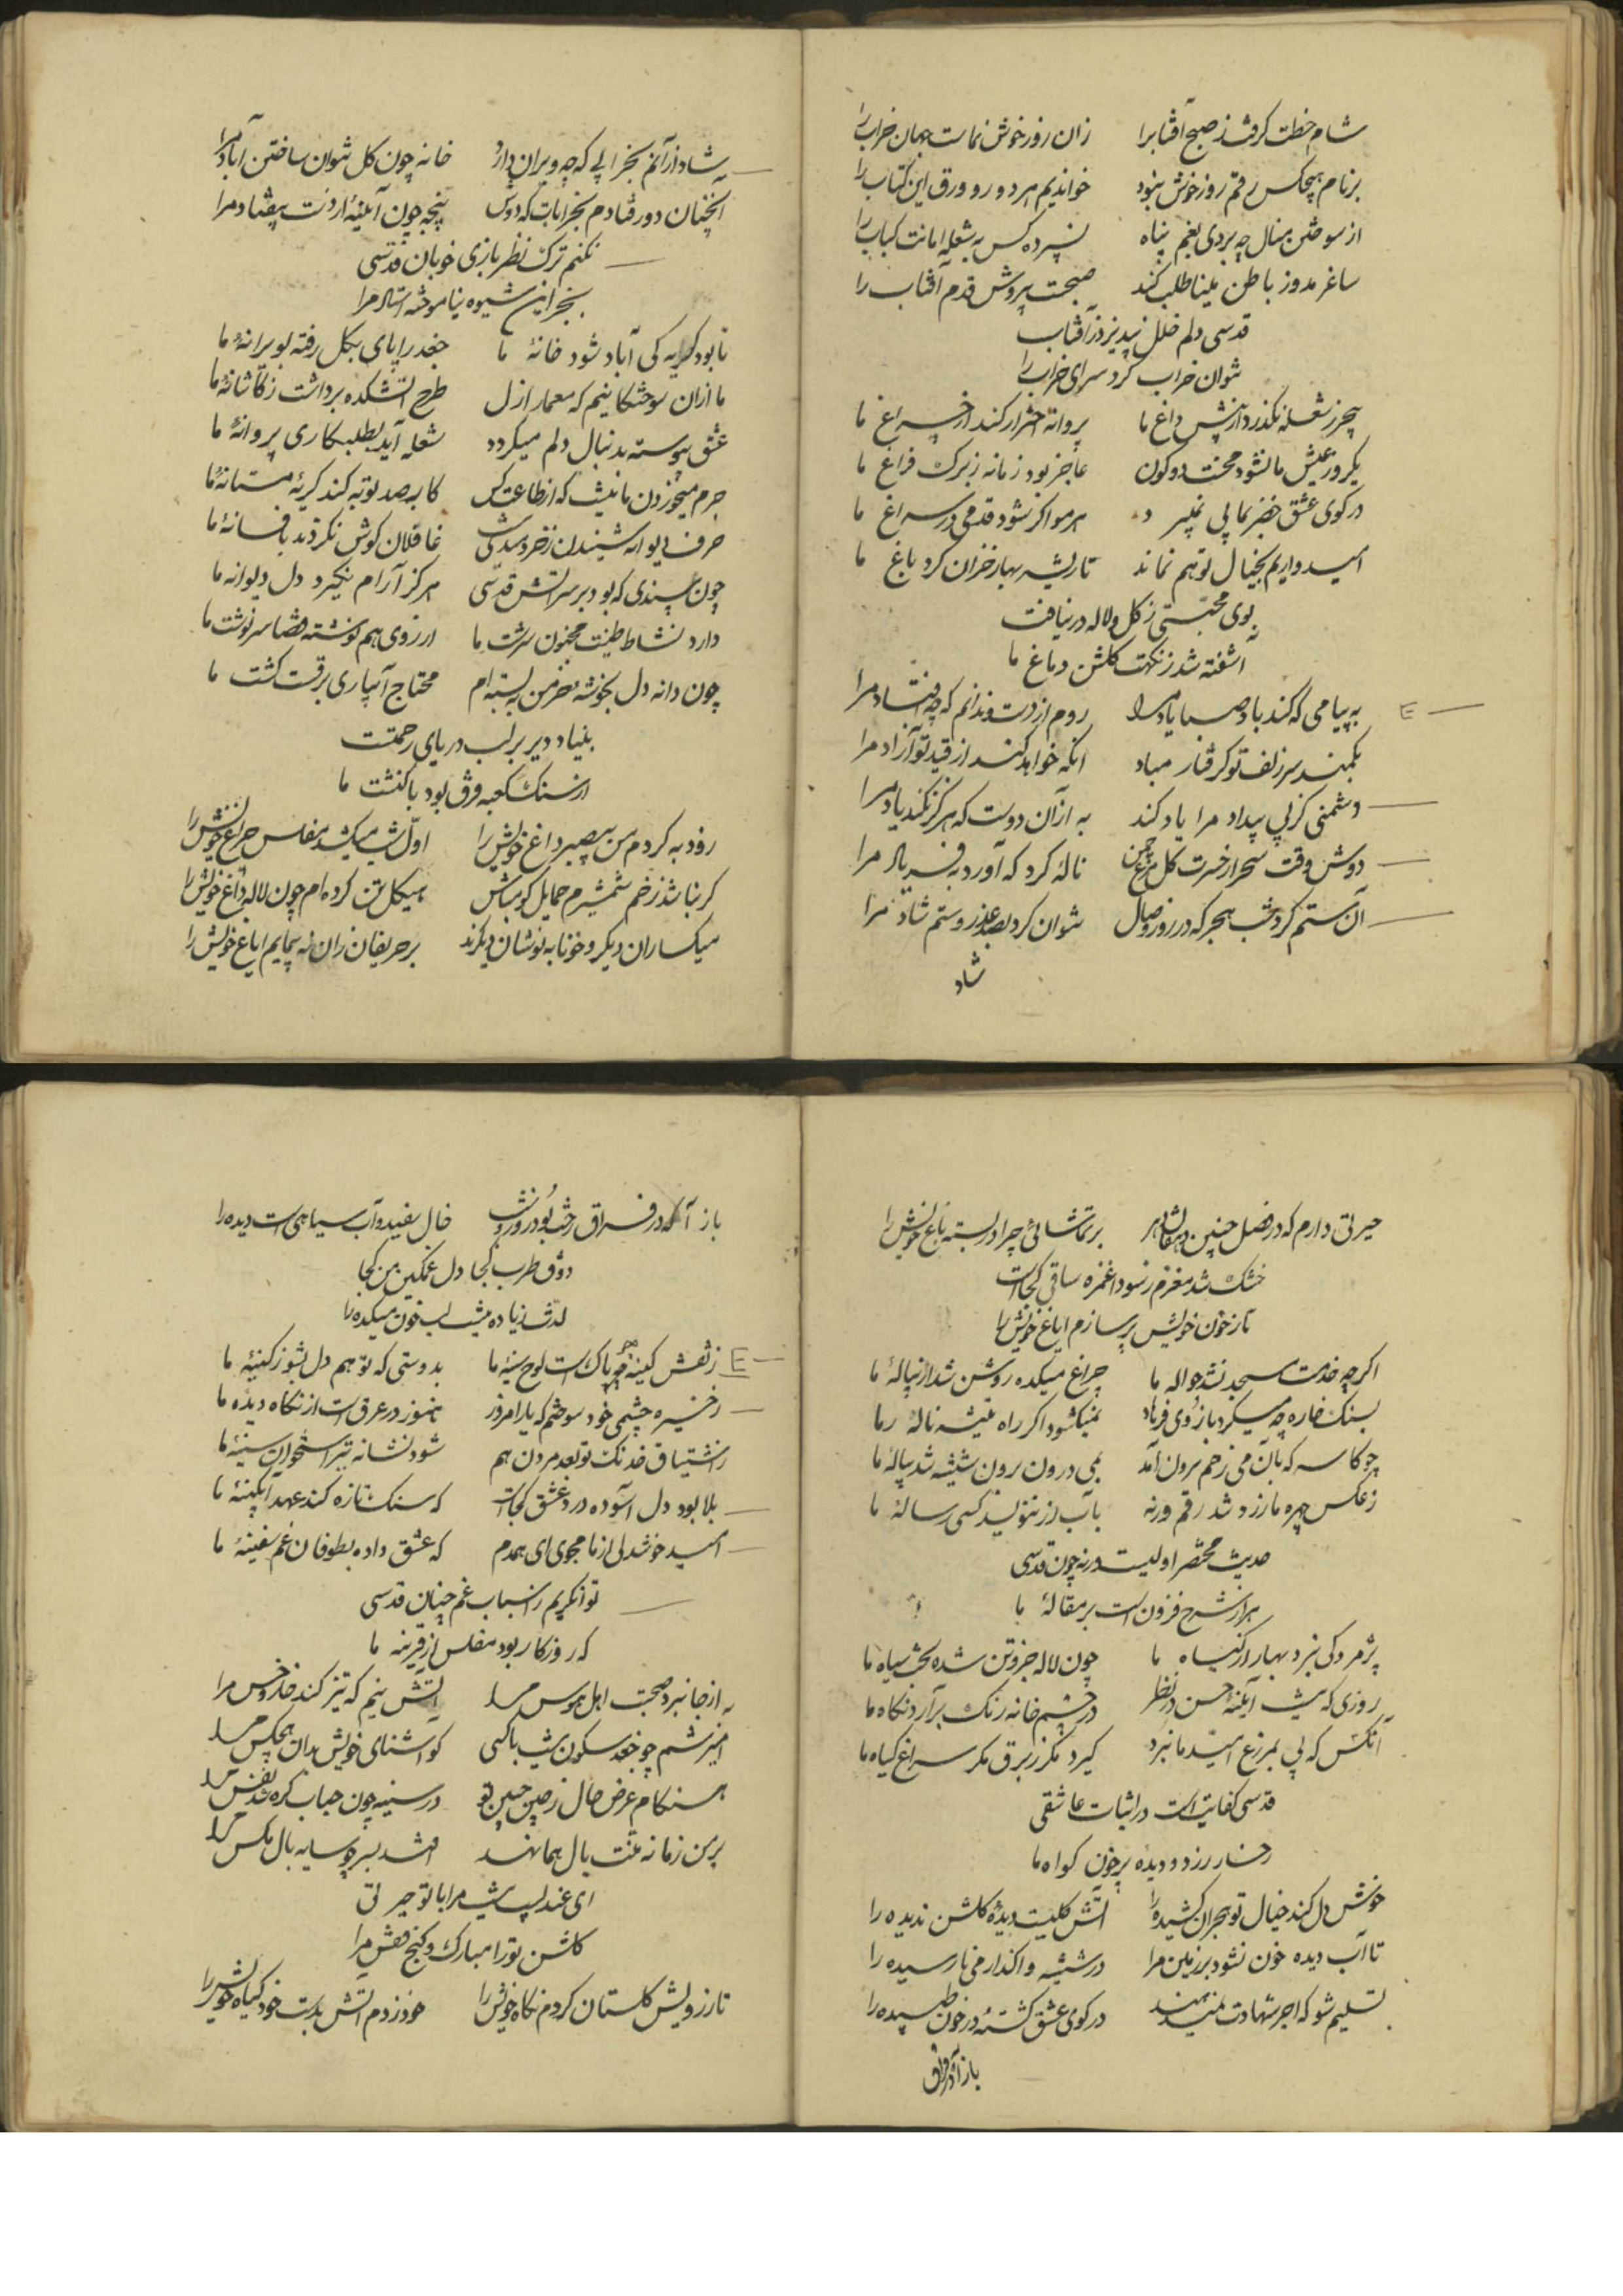 شام خطت گرفت ز صبح آفتاب را زان روز خوش نماست جهان خراب را
بر نام هیچکس رقم روز خوش نبود خواندیم هر دو رو ورق این کتاب را
از سوختن منال چه بردی بغم پناه نسپرده کس به شعله امانت کباب را
ساغر مدوز باطن مینا طلب کند صبحت پروش قدم آفتاب را
قدسی دلم خلل نپذیرد ز آفتاب
نتوان خراب کرد سرای خراب را
هرگز شعله نگذرد از پیش داغ ما پروانه احتراز کند از چراغ ما
یکروز عیش ما نشود محنت دو کون عاجز بود زمانه ز برگ فراغ ما
در کوی عشق خضر بما پی نمیبرد هر مو اگر شود قدمی در سراغ ما
امیدواریم بخیال تو هم نماند تا ریشه بهار خزان کرد باغ ما
بوی محبتی ز گل و لاله در نیافت
آشفته شد ز نکهت گلشن دماغ ما
به پیامی که کند باد صبا یاد مرا روم از دست و ندانم که چه افتاد مرا
بکمند سر زلف تو گرفتار مباد آنکه خواهد کند از قید تو آزاد مرا
دشمنی کز پی بیداد مرا یاد کند به از آن دوست که هرگز نکند یاد مرا
دوش وقت سحر از حسرت گل مرغ چمن ناله کرد که آورد به فریاد مرا
آن ستم کرد شب هجر که در روز وصال نتوان کرد بصد عذر و ستم شاد مرا
شاد
شاد از آنم بخرابی که چو ویران دارد خانه چون گل نتوان ساختن آباد مرا
آنچنان دور فتادم بخرابات که دوش پنجه چون آینه از دست بیفتاد مرا
نکنم ترک نظربازی خوبان قدسی
بجز این شیوه نیاموخته استاد مرا
تا بود گریه کی آباد شود خانهٔ ما جغد را پای بگل رفته بویرانهٔ ما
ما از آن سوختگانیم که معمار ازل طرح آتشکده برداشت ز کاشانهٔ ما
عشق پیوسته بدنبال دلم میگردد شعله آید بطلبکاری پروانهٔ ما
جرم میخوردن ما نیست که از طاعت کس کا به صد توبه کند گریهٔ مستانهٔ ما
حرف دیوانه شنیدن ز خردمندی غافلان گوش نکردند بافسانهٔ ما
چون سپندی که بود بر سر آتش قدسی هرگز آرام نگیرد دل دیوانه ما
دارد نشاط طینت مجنون سرشت ما از روی هم نوشته قضا سرنوشت ما
چون دانه دل بخوشهٔ خرمن نبسته ام محتاج آبیاری برقست کشت ما
بنیاد دیر بر لب دریای رحمتست
از سنگ کعبه فرق بود با کنشت ما
زود به کردم من بیصبر داغ خویش را اول شب میکشد مفلس چراغ خویش را
گر نباشد زخم شمشیرم حمایل گو مباش هیکل تن کرده ام چون لاله داغ خویش را
میگساران دیگر و خونابه نوشان دیگرند بر حریفان زان نه پیمایم ایاغ خویش را
حیرتی دارم که در فصل چنین دهقان دهر بر تماشائی چرا در بسته باغ خویش را
خشک شد مغزم ز سودا غمزه ساقی کجاست
تا ز خون خویش پر سازم ایاغ خویش را
اگر چه خدمت مسجد نشد حواله ما چراغ میکده روشن شد از پیالهٔ ما
بسنگ خاره چه میکرد بازوی فرهاد نمیگشود اگر راه تیشه نالهٔ ما
چو کاسه که بآن می ز خم برون آمد بمی درون و برون شسته شد پیالهٔ ما
ز عکس چهره ما زرد شد رقم ورنه بآب زر ننویسد کسی رسالهٔ ما
حدیث مختصر اولیست ورنه چون قدسی
هزار شرح فزونست بر مقالهٔ ما
پژمردگی نبرد بهار از گیاه ما چون لاله جزو تن شده بخت سیاه ما
روزی که نیست آینهٔ حسن در نظر در چشم خانه زنگ برآرد نگاه ما
آنکس که پی بمزرع امید ما نبرد گیرد مگر ز برق مگر سراغ گیاه ما
قدسی کفایتست در اثبات عاشقی
رخسار زرد و دیده پرخون گواه ما
خوش دل کند خیال تو هجران کشیده را آتش گلیست دیدهٔ گلشن ندیده را
تا آب دیده خون نشود بر زمین مرا در شیشه واگذار می نارسیده را
تسلیم شو که اجر شهادت نمیدهند در کوی عشق کشتهٔ در خون طپیده را
باز آ که در فراق
باز آ که در فراق رخت بود روز و شب خال سفید و آب سیاهی است دیده را
ذوق طرب کجا دل غمگین من کجا
لذت زیاده نیست لب خون مکیده را
ز نقش کینه چو پاکست لوح سینهٔ ما بدوستی که تو هم دل بشو ز کینهٔ ما
ز خیره چشمی خود سوختم که یار امروز هنوز در عرق است از نگاه دیده ما
ز اشتیاق خدنگ تو بعد مردن هم شود نشانه تیر استخوان سینهٔ ما
بلا بود دل آسوده درد عشق کجاست که سنگ تازه کند عهد آبگینهٔ ما
امید خوشدلی از ما مجوی ای همدم که عشق داده بطوفان غم سفینهٔ ما
توانگریم ز اسباب غم چنان قدسی
که روزگار بود مفلس از قرینه ما
از جا نبرد صحبت اهل هوس مرا آتش نیم که تیز کند خار و خس مرا
آمیزشم چو جغد سکون نیست با کسی کو آشنای خویش مدان هیچکس مرا
هنگام عرض حال ز چین جبین تو در سینه چون حباب گره شد نفس مرا
بر من زمانه منت بال هما نهد افتد بسر چو سایه بال مگس مرا
ای عندلیب نیست مرا با تو حیرتی
گلشن تو را مبارک و کنج قفس مرا
تا ز رویش گلستان کردم نگاه خویش را خود زدم آتش بدست خود گیاه خویش را